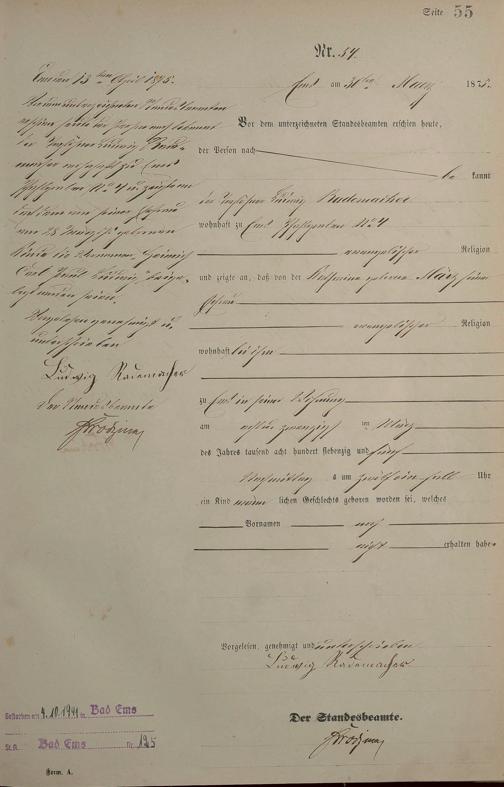 Seite 55
Nr. 54.
Ems am 30ten März 1875.
Vor dem unterzeichneten Standesbeamten erschien heute,
der Person nach
be kannt
der Ludwig Rademacher
wohnhaft zu Ems No 4
evangelischer Religion
und zeigte an, daß von der Katharina geborenen März seiner
Ehefrau
evangelischer Religion
wohnhaft bei ihm
zu Ems in seiner Wohnung
am acht und zwanzigsten März
des Jahres tausend acht hundert siebenzig und fünf
Nachmittags um zwölf ein halb Uhr
ein Kind männlichen Geschlechts geboren worden sei, welches
Vornamen noch
nicht erhalten habe
Vorgelesen, genehmigt und unterschrieben
Ludwig Rademacher
Der Standesbeamte.
Ems den 13ten April 1875.
Vor dem unterzeichneten Standesbeamten
erschien heute der Person nach bekannt
der Ludwig Rade-
macher wohnhaft zu Ems
No 4 und zeigte an
daß dem von seiner Ehefrau
am 28 März geborenen
Kinde die Vornamen Heinrich
Carl Ludwig beige-
legt worden seien.
Vorgelesen genehmigt u.
unterschrieben
Ludwig Rademacher
Der Standesbeamte
Gestorben am 4.10.1941 in Bad Ems
St.A. Bad Ems Nr. 125
Form. A.